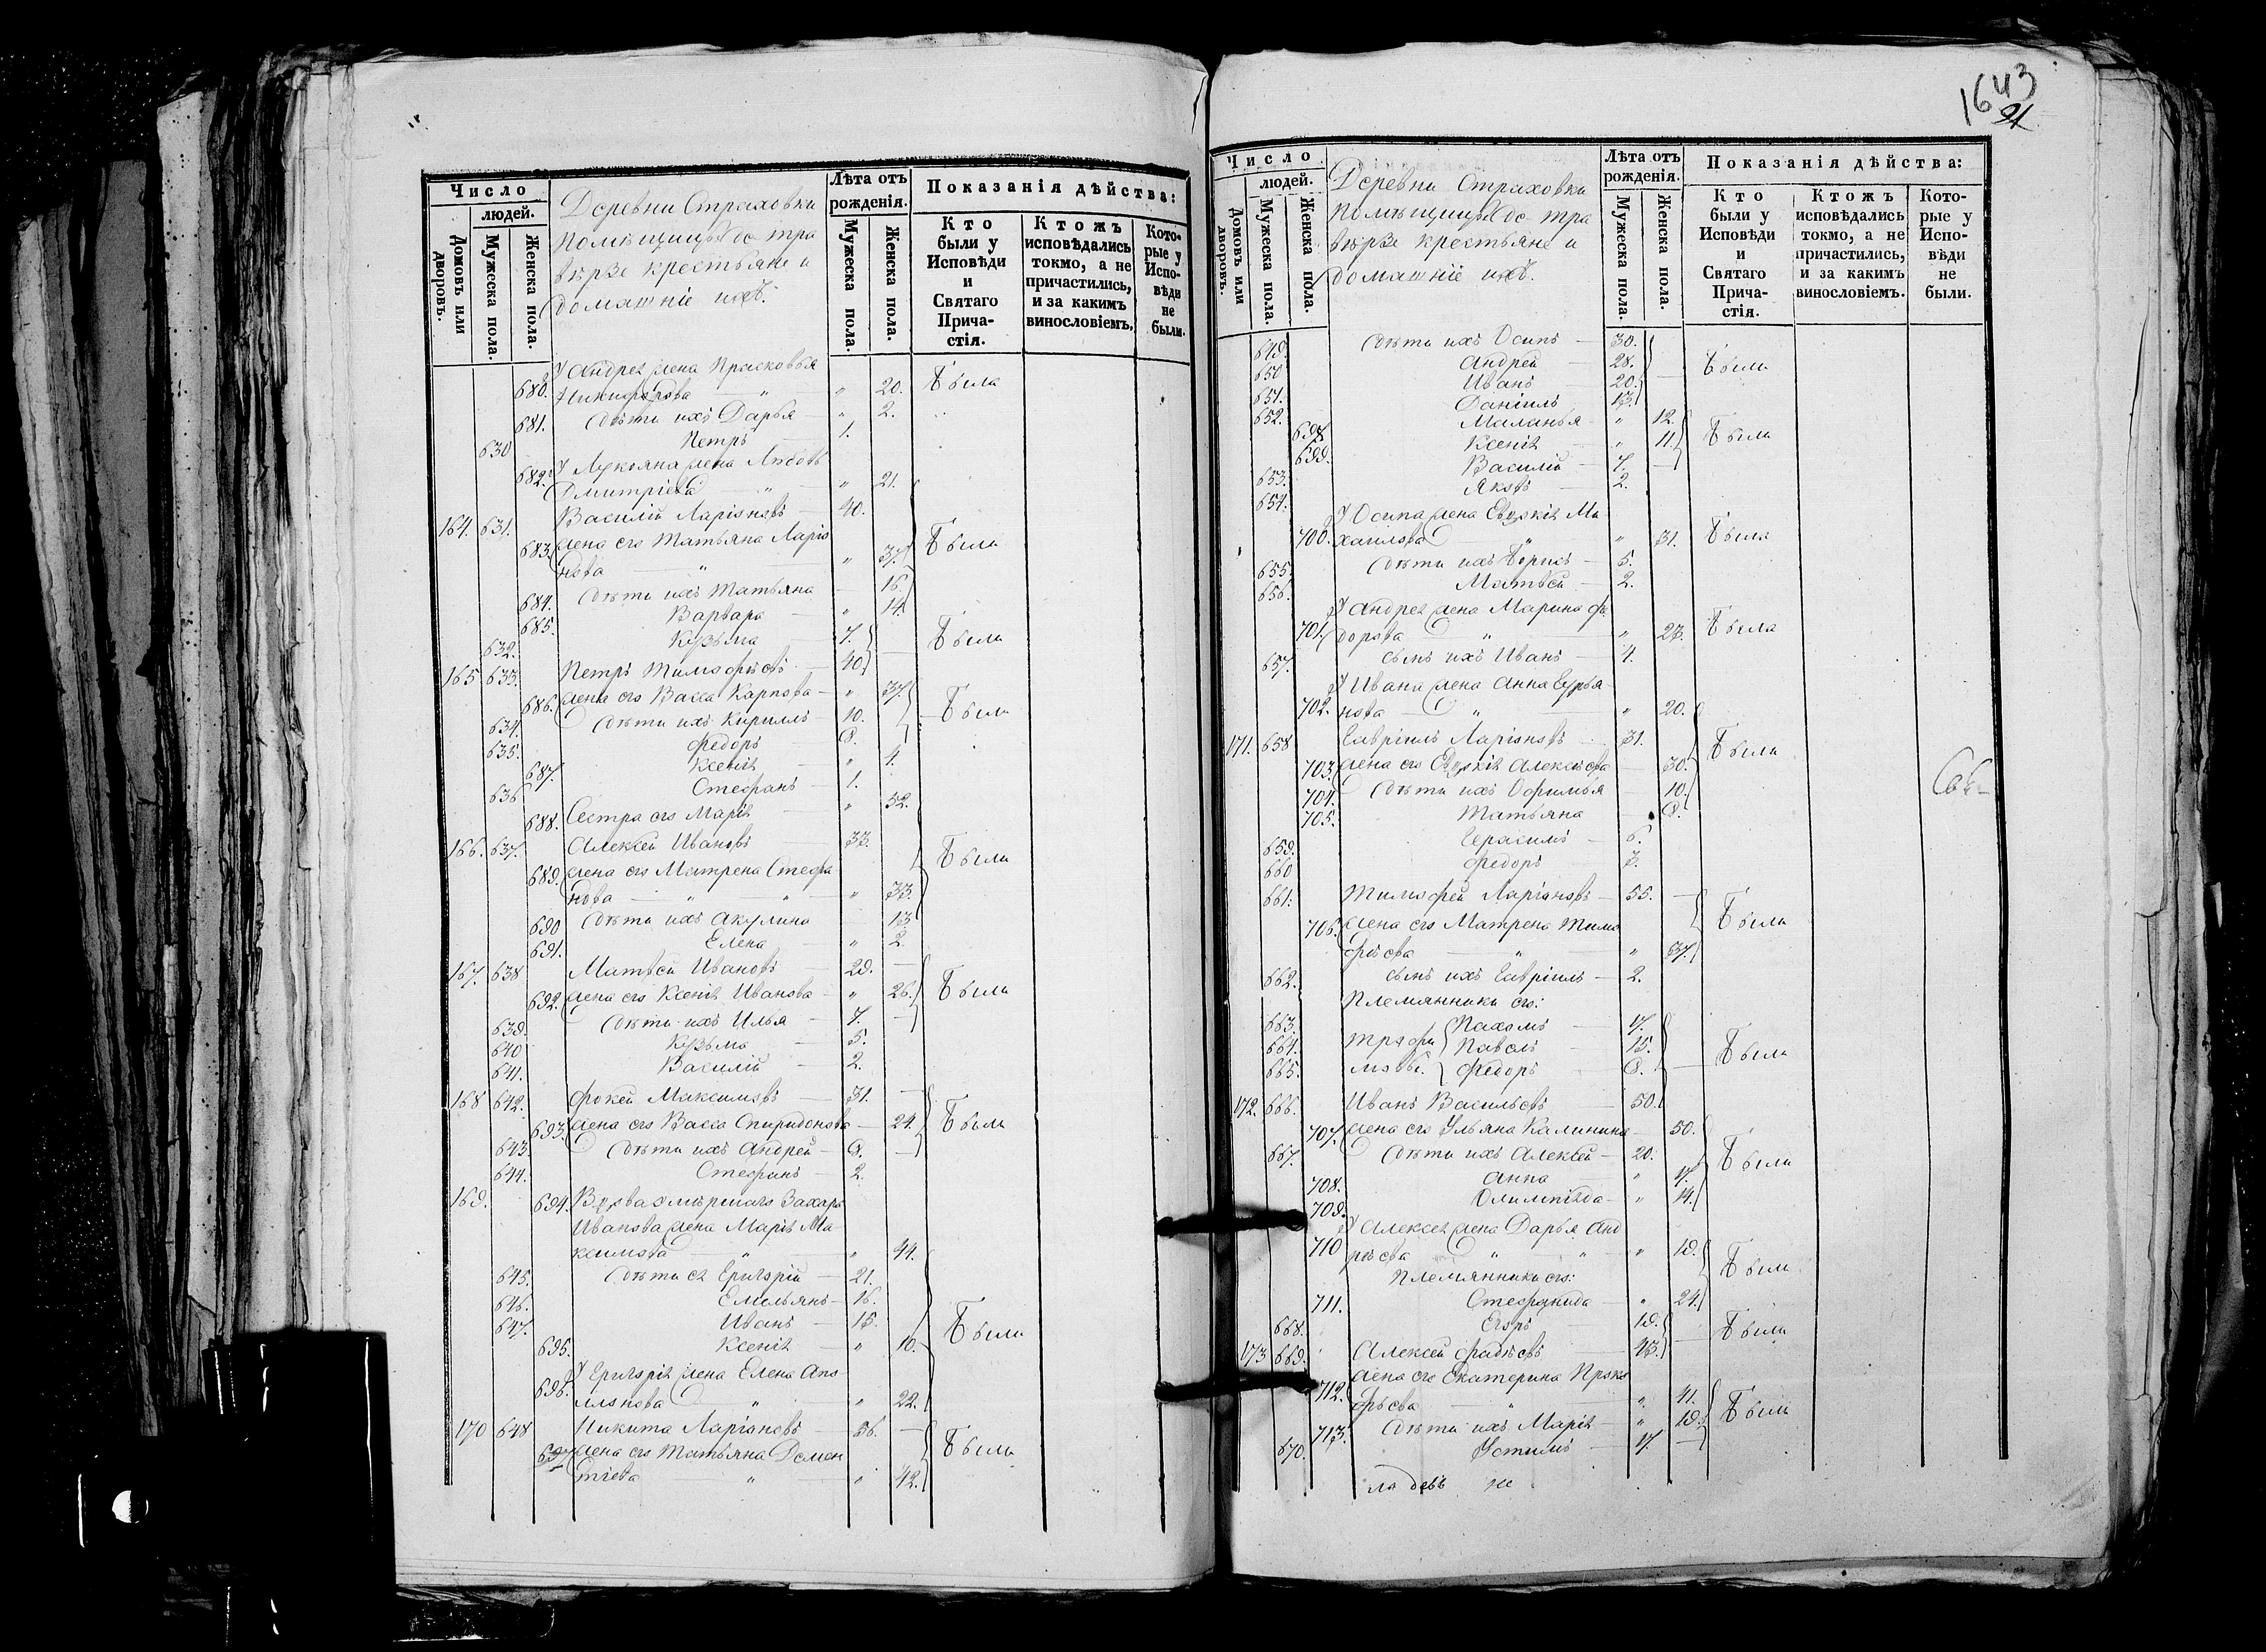 1643
21
Число
людей.
Домовъ или дворовъ.
Мужеска пола.
Женска пола.
Деревни Страховки
помѣщицы де тра
вѣрзе крестьяне и
домашніе ихъ.
Лѣта отъ рожденія.
Мужеска пола.
Женска пола.
Показанія дѣйства:
Кто были у Исповѣди и Святаго Причастія.
Ктожъ исповѣдались токмо, а не причастились, и за какимъ винословіемъ.
Которые у Исповѣди не были.
680. У Андрея жена Прасковья
Никифорова " " 20. были
681. Дѣти ихъ Дарья " 2.
630 Петръ 1.
682. У Лукояна жена Любовь
Дмитріева " " 21.
164. 631. Василій Ларіоновъ 40.
683. жена его Татьяна Ларіо
нова " " 37. были
684. Дѣти ихъ Татьяна 16.
685. Варвара " 14.
632. Кузьма 7. были
165 633. Петръ Тимофѣевъ 40
686. жена его Васса Карпова " 37
634. Дѣти ихъ Кириллъ 10. были
635. Федоръ 8.
687. Ксенія " 4.
636 Стефанъ 1.
688. Сестра его Марія " 52.
166. 637. Алексей Ивановъ 33.
689. жена его Матрена Стефа были
нова " " " 33.
690 Дѣти ихъ Акулина 13
691. Елена " 2.
167. 638 Матвей Ивановъ 29.
692. жена его Ксенія Иванова " 26. были
639. Дѣти ихъ Илья 7.
640 Кузьма 5.
641. Василій 2.
168 642. Фокей Максимовъ 31.
693. жена его Васса Спиридонова 24. были
643. Дѣти ихъ Андрей 8.
644. Стефанъ 2.
169. 694. Вдова умершаго Захара
Иванова жена Марія Ма
ксимова " " 44.
645. Дѣти ея Григорій 21.
646. Емельянъ 16.
647. Иванъ 15. были
695. Ксенія " 10.
696. У Григорія жена Елена Апо
лонова " " 22.
170 648 Никита Ларіоновъ 56.
697. жена его Татьяна Демен были
тіева " " 42.
Число
людей.
Домовъ или дворовъ.
Мужеска пола.
Женска пола.
Деревни Страховки
помѣщицы де тра
вѣрзе крестьяне и
домашніе ихъ.
Лѣта отъ рожденія.
Мужеска пола.
Женска пола.
Показанія дѣйства:
Кто были у Исповѣди и Святаго Причастія.
Ктожъ исповѣдались токмо, а не причастились, и за какимъ винословіемъ.
Которые у Исповѣди не были.
649. Дѣти ихъ Осипъ 30.
650 Андрей 28. были
651. Иванъ 20.
652. Даніилъ 13.
698 Маланья " 12.
699. Ксенія " 11. были
653. Василій 7.
654. Яковъ 2.
У Осипа жена Евдокія Ми
700. хаилова " " 31. была
655. Дѣти ихъ Борисъ 5.
656. Матвей 2.
У Андрея жена Марина Фе
701. дорова " " 23. была
657. сынъ ихъ Иванъ 4.
У Ивана жена Анна Гурья
702. нова " " 20.
171. 658 Гавріилъ Ларіоновъ 31. были
703. жена его Евдокія Алексѣева 30.
704. Дѣти ихъ Офимья 10.
705. Татьяна 8.
659. Герасимъ 6.
660 Федоръ 3.
661. Тимофей Ларіоновъ 55.
706. жена его Матрена Тимо были
фѣева " " 37.
662. сынъ ихъ Гавріилъ 2.
Племянники его:
663. Пахомъ 17.
664. Трофи Павелъ 15. были
665. мовы. Федоръ 8.
172. 666. Иванъ Васильевъ 50.
707. жена его Ульяна Калинина 50.
667. Дѣти ихъ Алексей 20. были
708. Анна " 17.
709. Олимпіада " 14.
У Алексея жена Дарья Анд
710 рѣева " " " 19. были
Племянники его:
711. Стефанида " 24.
668. Егоръ 19. были
173 669. Алексей Фадѣевъ 43.
712. жена его Екатерина Проко
фьева " " 41.
713. Дѣти ихъ Марія " 19. были
670. Устинъ 17.